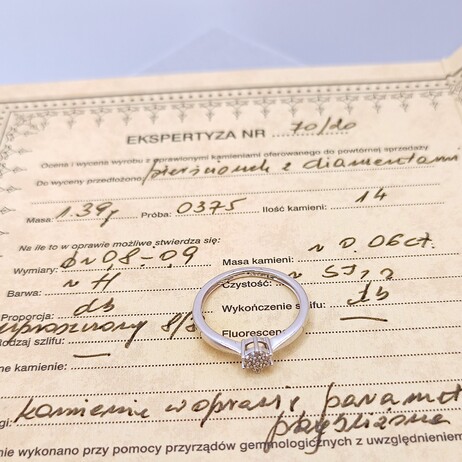 EKSPERTYZA NR 70/20
Ocena i wycena wyrobu z oprawionymi kamieniami oferowanego do powtórnej sprzedaży
Do wyceny przedłożono pierścionek z diamentami
Masa: 1.39g Próba: 0375 Ilość kamieni: 14
Na ile to w oprawie możliwe stwierdza się:
Wymiary: 0.8-0.9 Masa kamieni: ~ 0.06ct.
Barwa: ~ H Czystość: ~ SI
Proporcja: db Wykończenie szlifu: db
odzaj szlifu: uproszczony 8/8 Fluorescen
ne kamienie: —
gi: kamienie w oprawie paramet
przybliżone
nie wykonano przy pomocy przyrządów gemmologicznych z uwzględnieniem